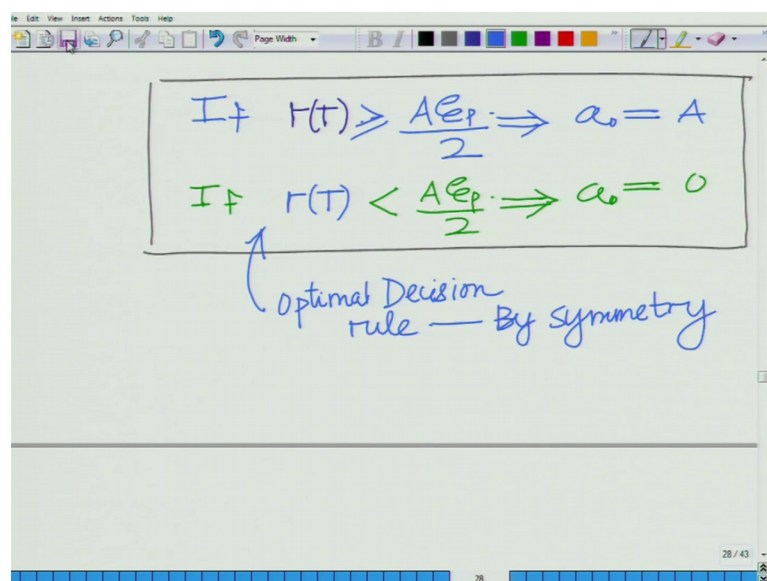 le Edit View Insert Actions Tools Help
Page Width B I
If r(T) ≥ AEp/2 ⇒ a₀ = A
If r(T) < AEp/2 ⇒ a₀ = 0
Optimal Decision
rule — By symmetry
28 / 43
28